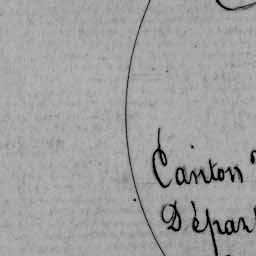 Canton
Dépar